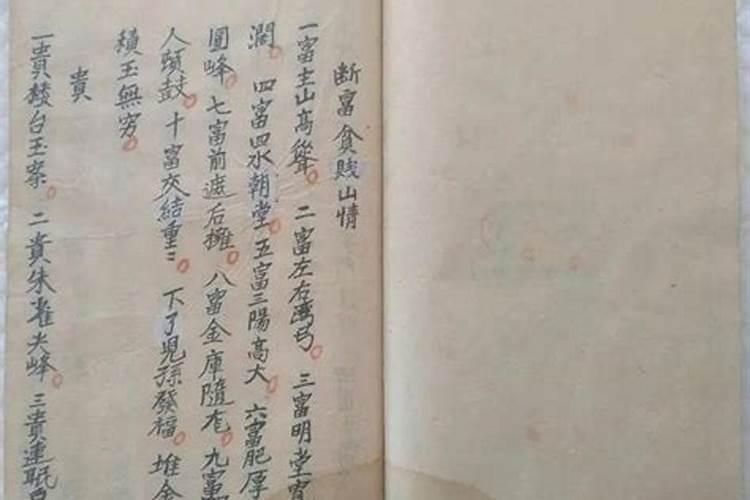 断富贪賎山情
一富主山高聳 二富左右湾弓 三富明堂寛
濶 四富四水朝堂 五富三陽高大 六富肥厚
圓峰 七富前遮后擁 八富金庫隨 九富
人頭鼓 十富交結重〻 下了児孫發福 堆金
積玉無穷
貴
一貴楼台玉案 二貴朱雀尖峰 三貴連珉